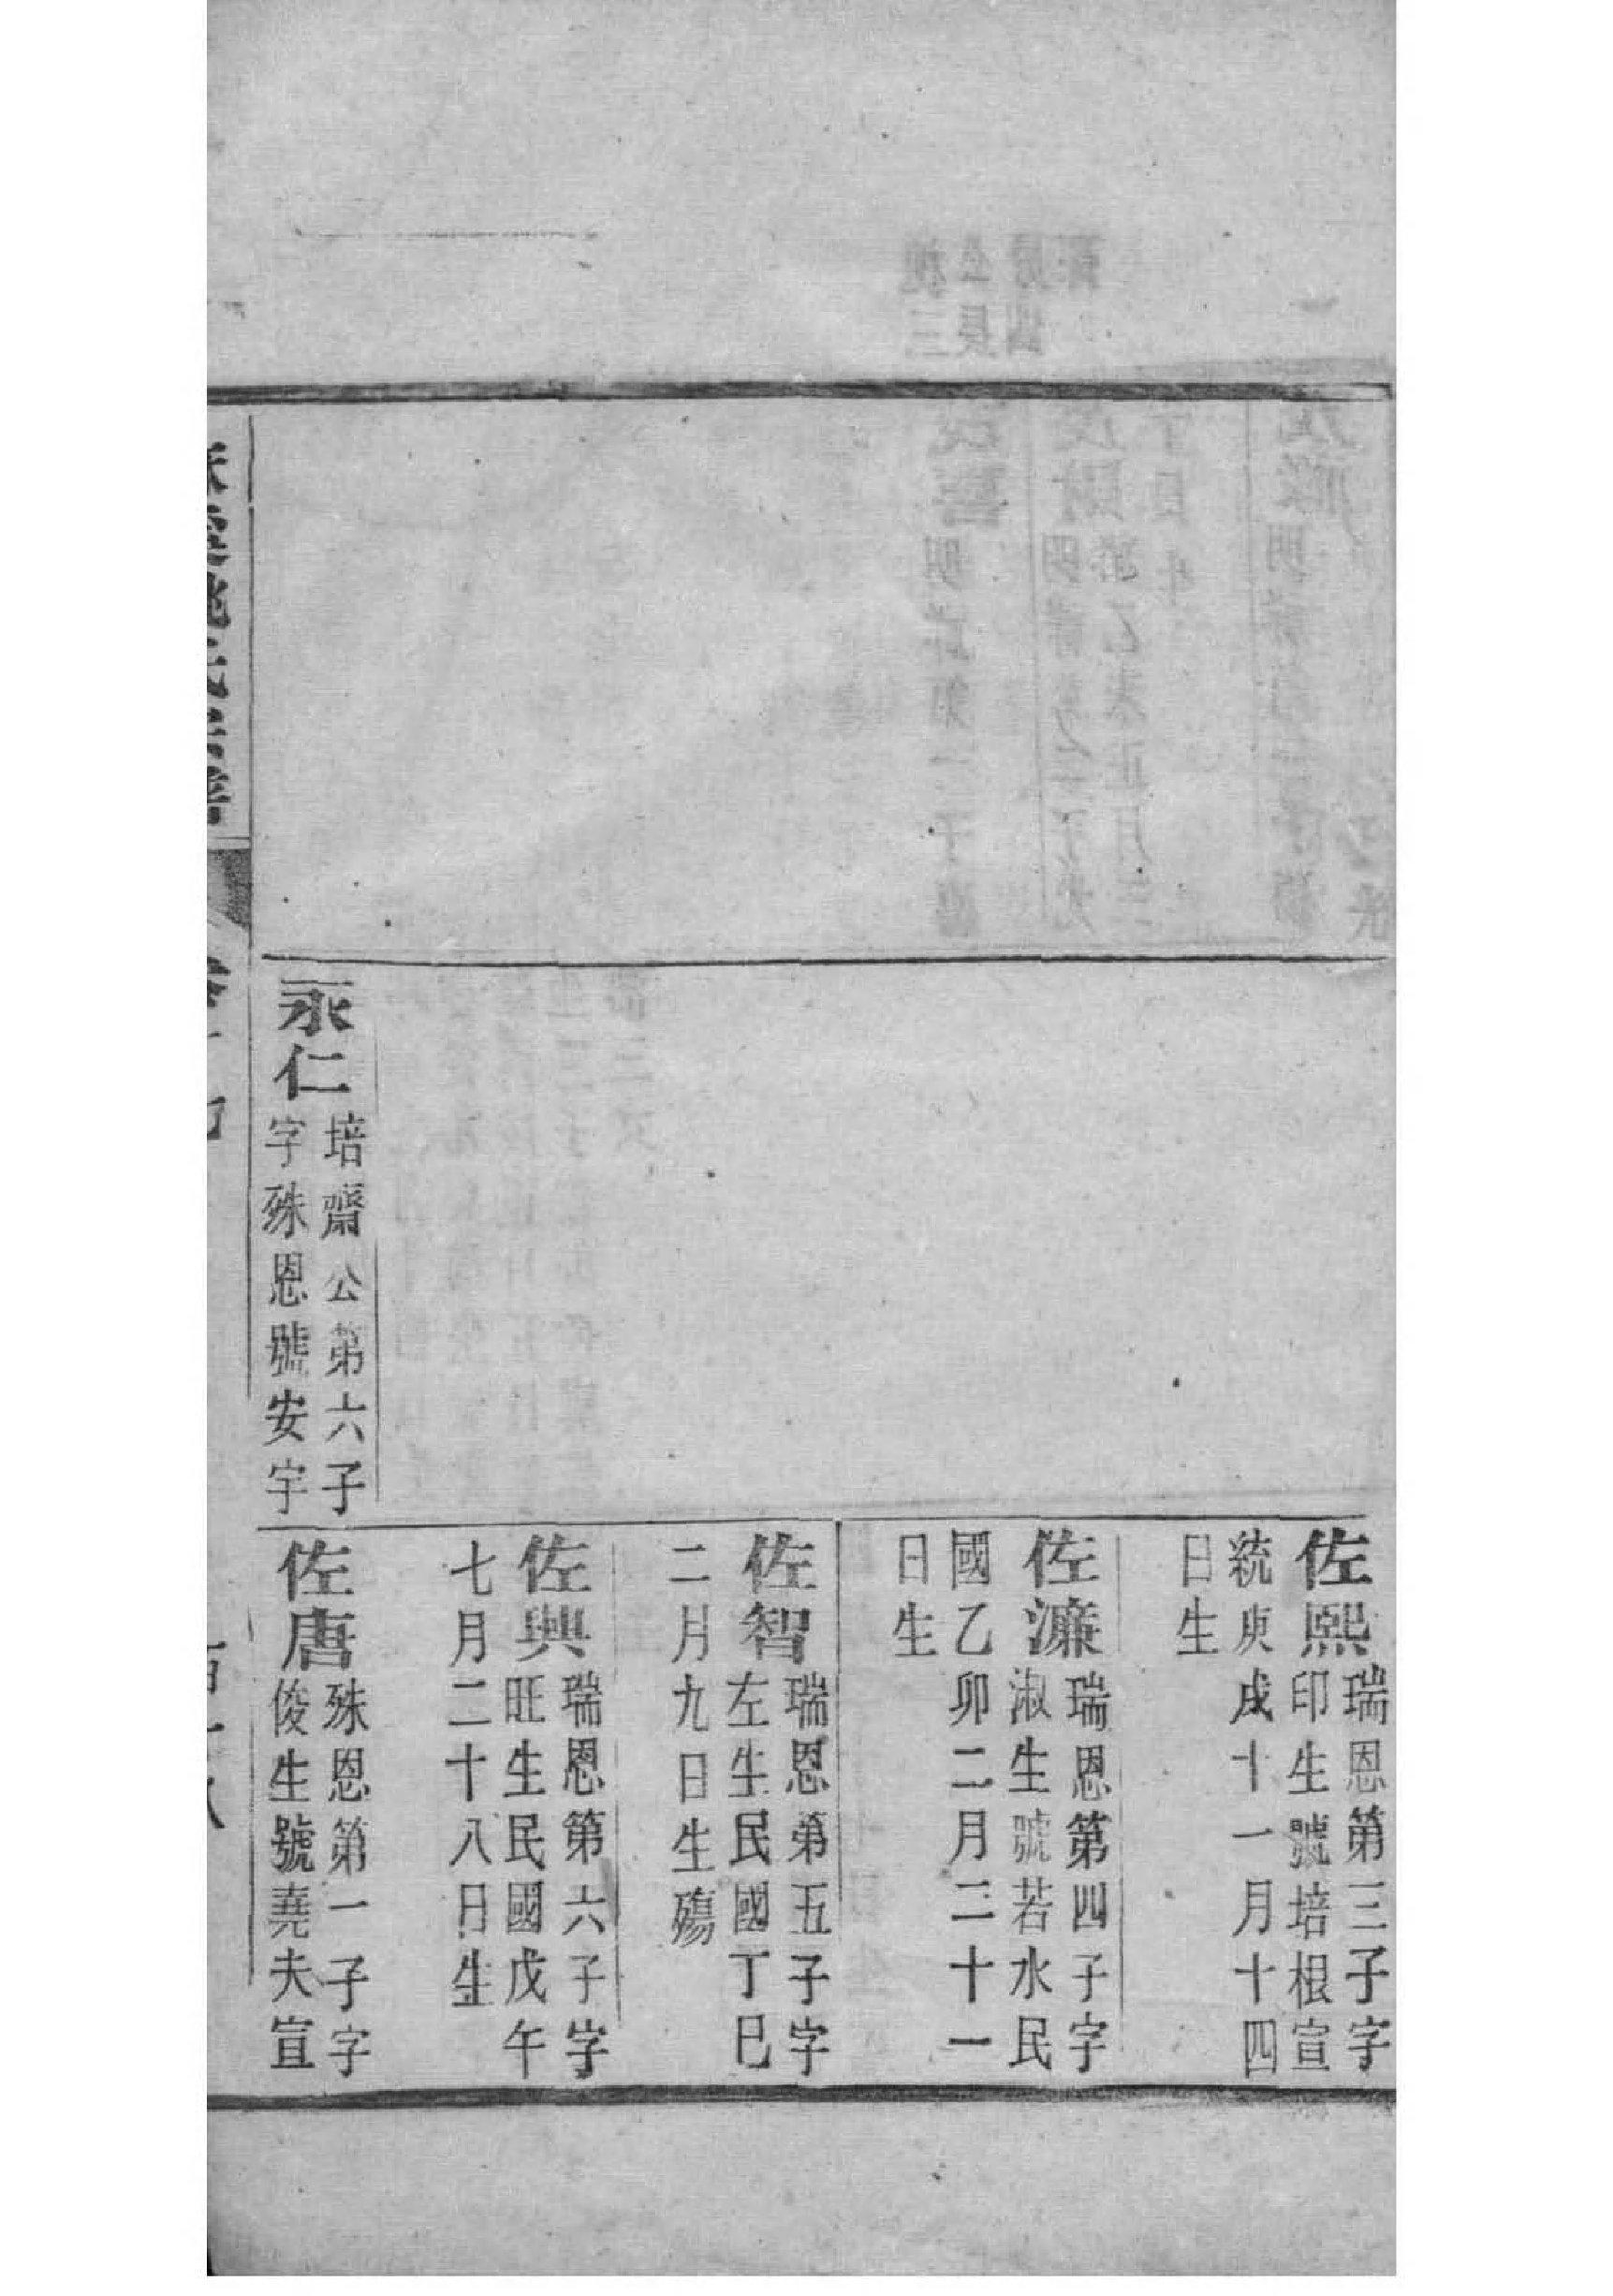 永仁
培齋公第六子
字殊恩號安宇
佐熙
瑞恩第三子字
印生號培根宣
統庚戌十一月十四
日生
佐濂
瑞恩第四子字
淑生號若水民
國乙卯二月二十一
日生
佐智
瑞恩第五子字
左生民國丁巳
二月九日生殤
佐興
瑞恩第六子字
旺生民國戊午
七月二十八日生
佐唐
殊恩第一子字
俊生號堯夫宣